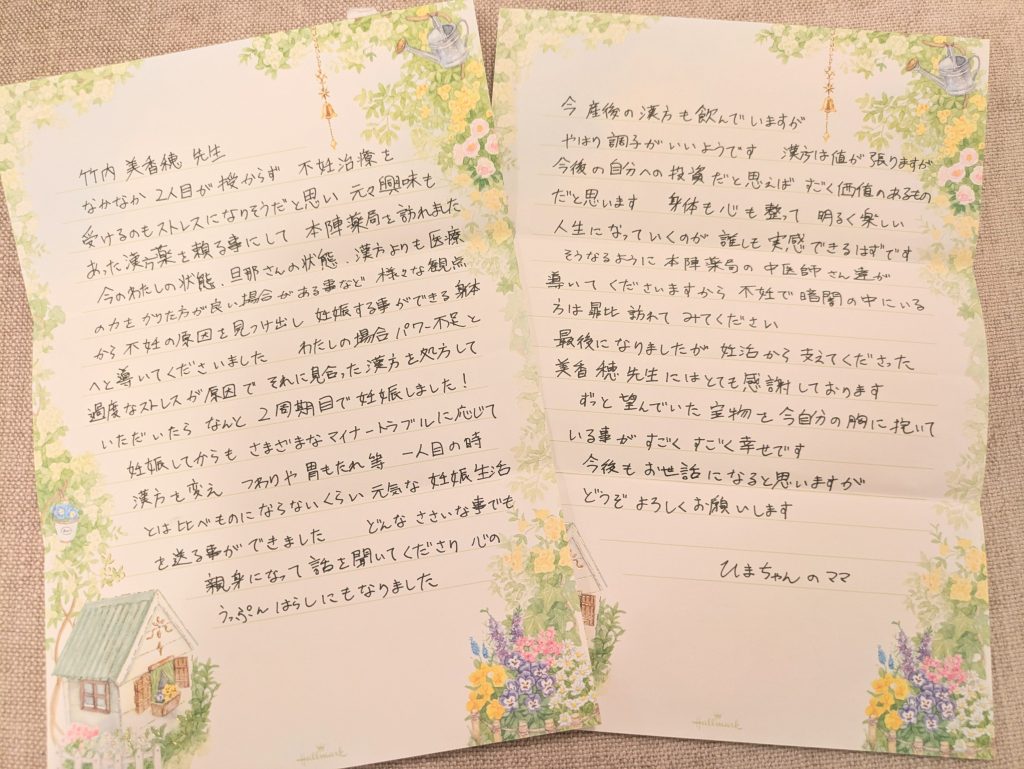 竹内 美香穂 先生
なかなか 2人目が 授からず 不妊治療を
受けるのもストレスになりそうだと思い 元々興味も
あった漢方薬を頼る事にして 本陣薬局を訪れました
今のわたしの状態、旦那さんの状態、漢方よりも医療
の力をかりた方が良い場合がある事など 様々な観点
から不妊の原因を見つけ出し 妊娠する事ができる身体
へと導いてくださいました わたしの場合パワー不足と
過度なストレスが原因で それに見合った漢方を処方して
いただいたら なんと 2周期目で妊娠しました!
妊娠してからも さまざまなマイナートラブルに応じて
漢方を変え つわりや 胃もたれ等 一人目の時
とは比べものにならないくらい 元気な 妊娠生活
を送る事ができました どんな ささいな事でも
親身になって 話を聞いてくださり 心の
うっぷんはらしにもなりました
Hallmark
今 産後の漢方も飲んでいますが
やはり調子がいいようです 漢方は値が張りますが
今後の自分への投資だと思えば すごく価値のあるもの
だと思います 身体も心も整って 明るく楽しい
人生になっていくのが 誰しも実感できるはずです
そうなるように 本陣薬局の中医師さん達が
導いてくださいますから 不妊で暗闇の中にいる
方は是非 訪れて みてください
最後になりましたが 妊活から支えてくださった
美香穂先生にはとても感謝しております
ずっと望んでいた宝物を今自分の胸に抱いて
いる事が すごく すごく幸せです
今後もお世話になると思いますが
どうぞ よろしくお願いします
ひまちゃんのママ
Hallmark